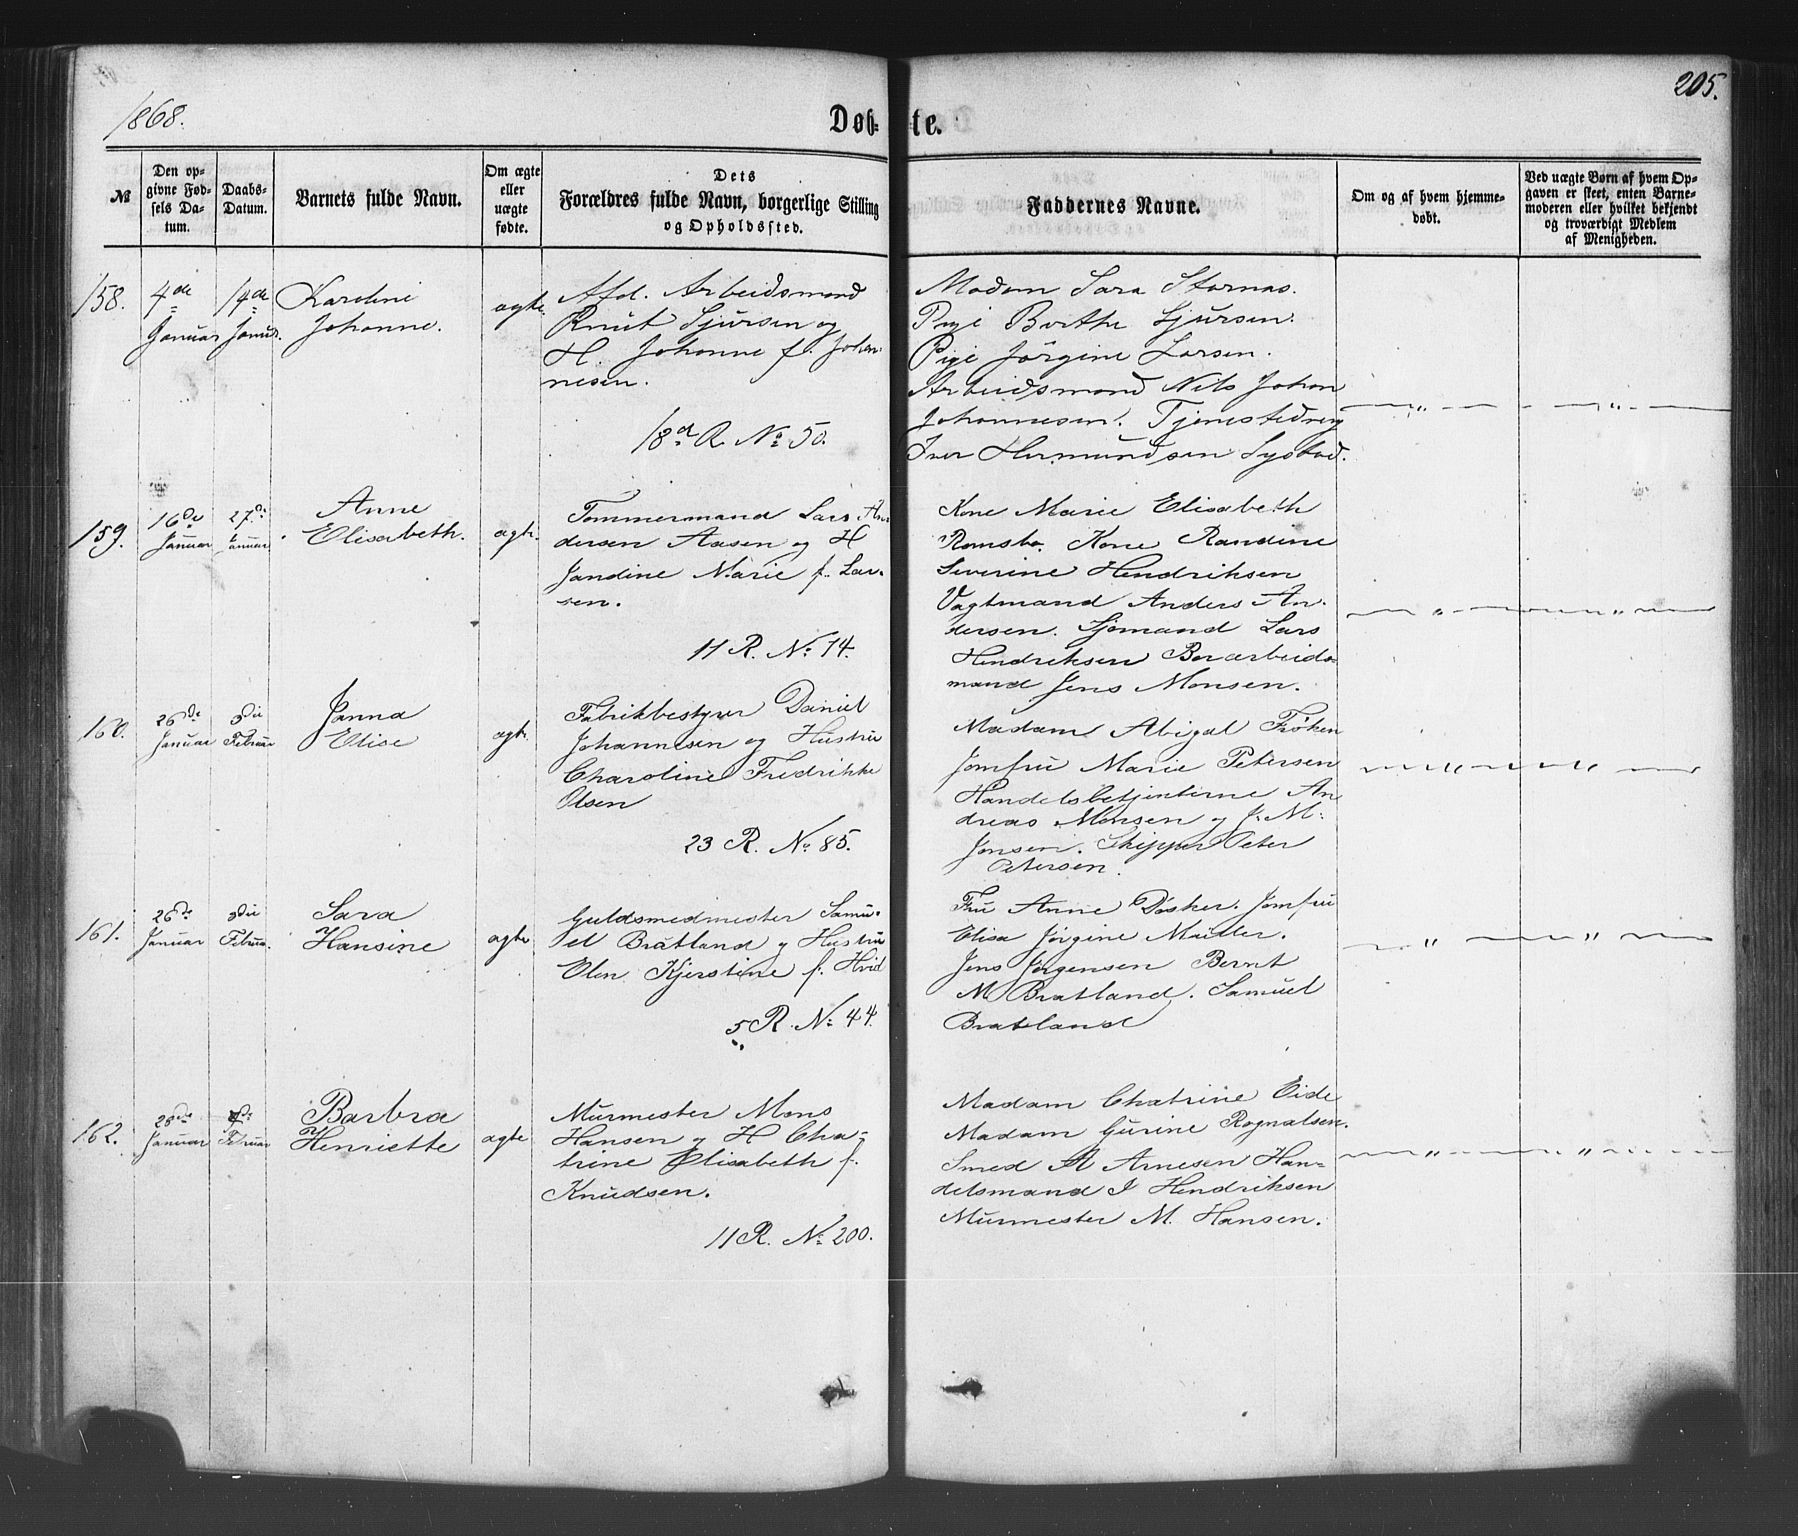 1868.
Døb-te.
205.
№
Den opgivne Fødsels Datum.
Daabs-Datum.
Barnets fulde Navn.
Om ægte eller uægte fødte.
Dets Forældres fulde Navn, borgerlige Stilling og Opholdssted.
Faddernes Navne.
Om og af hvem hjemmedøbt.
Ved uægte Børn af hvem Opgaven er skeet, enten Barnemoderen eller hvilket bekjendt og troværdigt Medlem af Menigheden.
158.
4de Januar
14de Januar
Karoline
Johanne.
ægte
Afd. Arbeidsmand
Knut Sjursen og
H. Johanne f. Johan-
nesen.
18de R. No 50.
Madam Sara Stornas.
Pige Berthe Sjursen.
Pige Jørgine Larsen.
Arbeidsmand Nils Johan
Johannesen. Tjenestedreng
Iver Hermundsen Systad.
159.
16de Januar
27de Januar
Anne
Elisabeth.
ægte
Tømmermand Lars An-
dersen Aasen og H
Jandine Marie f. Lar-
sen.
11 R. No 74.
Kone Marie Elisabeth
Romsbo. Kone Randine
Severine Hendriksen
Vagtmand Anders An-
dersen. Sjømand Lars
Hendriksen Borarbeids-
mand Jens Monsen.
160.
26de Januar
3die Februar
Janna
Elise
ægte
Fabrikbestyrer Daniel
Johannesen og Hustru
Charoline Fredrikke
Olsen
23 R. No 85.
Madam Abigal Frøken
Jomfru Marie Petersen
Handelsbetjenterne An
dreas Monsen og J. M.
Jansen. Skipper Peter
Petersen.
161.
26de Januar
3die Februar
Sara
Hansine
ægte
Guldsmedmester Samu-
el Bratland og Hustru
Elen Kjerstine f. Hvid
5 R. No 44.
Fru Anne Døsker. Jomfru
Elisa Jørgine Møller.
Jens Jørgensen Bernt
M Bratland. Samuel
Bratland
162.
28de Januar
Februar
Barbra
Henriette
ægte
Murmester Mons
Hansen og H Cha-
trine Elisabeth f.
Knudsen.
11 R. No 200.
Madam Chatrine Eide
Madam Gurine Rognalsen.
Smed A Arnesen Han-
delsmand I Hendriksen
Murmester M. Hansen.